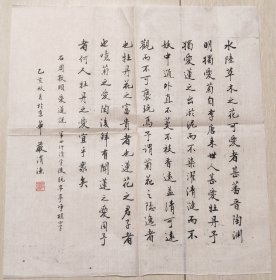 水陸草木之花可愛者甚蕃晉陶淵
明獨愛菊自李唐來世人甚愛牡丹予
獨愛蓮之出於泥而不染濯清漣而不
妖中通外直不蔓不枝香遠益清可遠
觀而不可褻玩焉予謂菊花之隱逸者
也牡丹花之富貴者也蓮花之君子者
也噫菊之愛陶後鮮有聞蓮之愛同予
者何人牡丹之愛宜乎衆矣
右周敦頤愛蓮說 第四行清字後脫亭亭淨植四字
乙亥秋月於京華 嚴渭漁